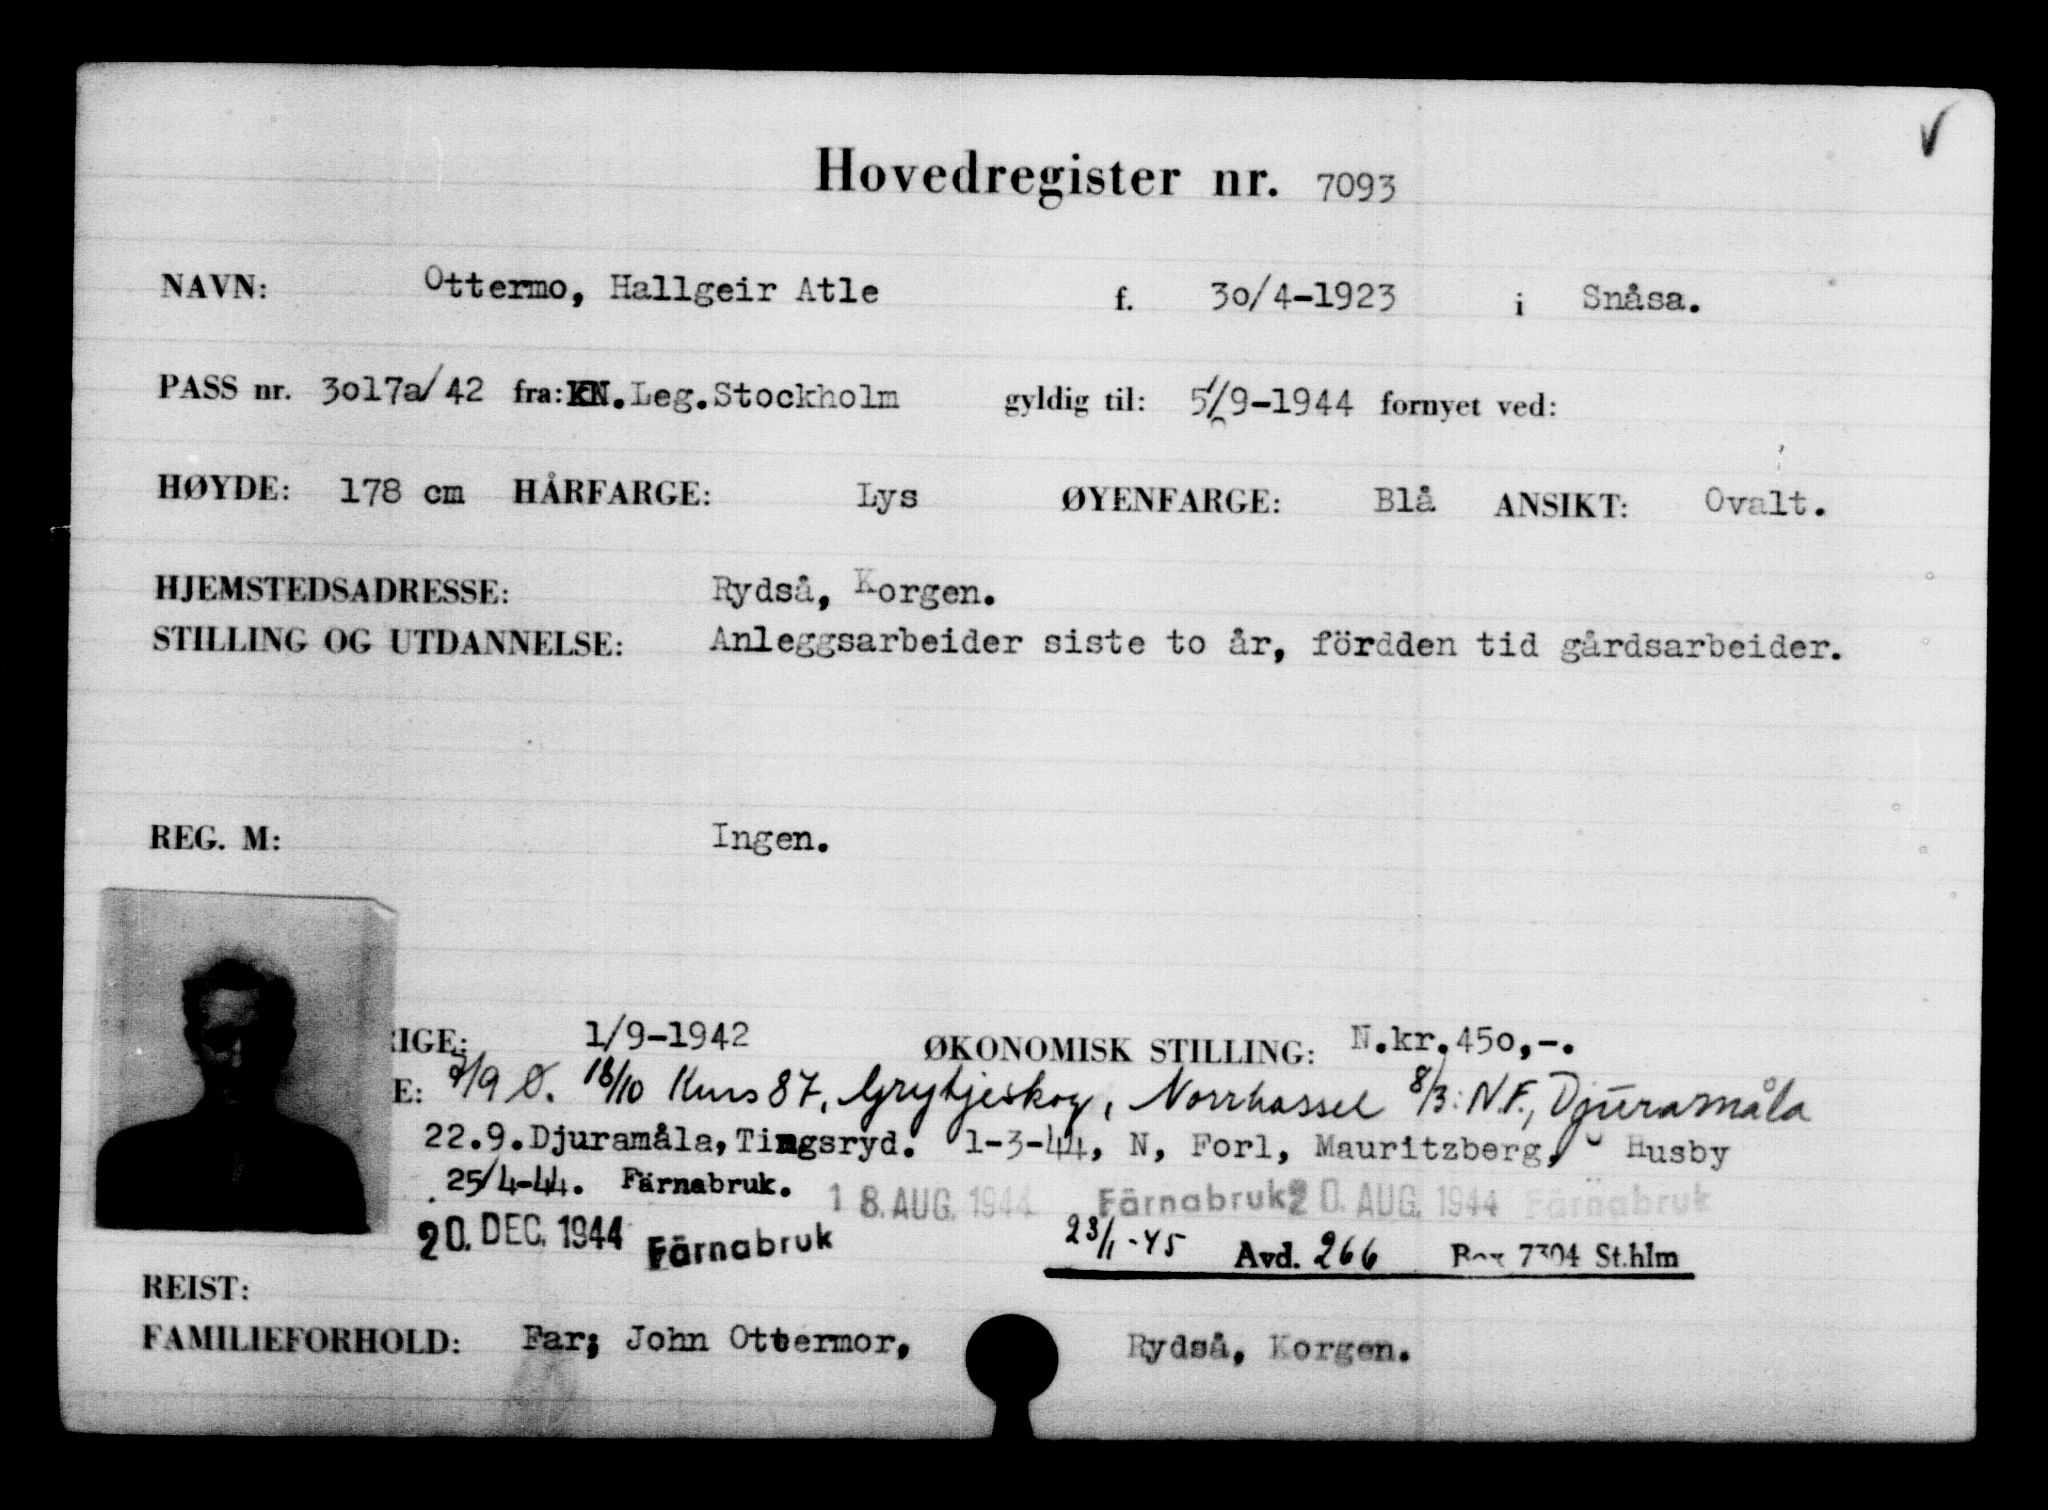 ✓
Hovedregister nr. 7093
NAVN: Ottermo, Hallgeir Atle f. 30/4-1923 i Snåsa.
PASS nr. 3017a/42 fra: KN.Leg.Stockholm gyldig til: 5/9-1944 fornyet ved:
HØYDE: 178 cm HÅRFARGE: Lys ØYENFARGE: Blå ANSIKT: Ovalt.
HJEMSTEDSADRESSE: Rydså, Korgen.
STILLING OG UTDANNELSE: Anleggsarbeider siste to år, fördden tid gårdsarbeider.
REG. M: Ingen.
RIGE: 1/9-1942 ØKONOMISK STILLING: N.kr.450,-.
E: /9 Ø. 18/10 Kurs 87, Grytjeskog, Norrhassel 8/3: N.F., Djuramåla
22.9.Djuramåla,Tingsryd. 1-3-44, N, Forl, Mauritzberg, Husby
25/4-44. Färnabruk. 18. AUG. 1944 Färnabruk 20. AUG. 1944 Färnabruk
20. DEC. 1944 Färnabruk 23/1-45 Avd. 266 Box 7304 St.hlm
REIST:
FAMILIEFORHOLD: Far; John Ottermor, Rydså, Korgen.